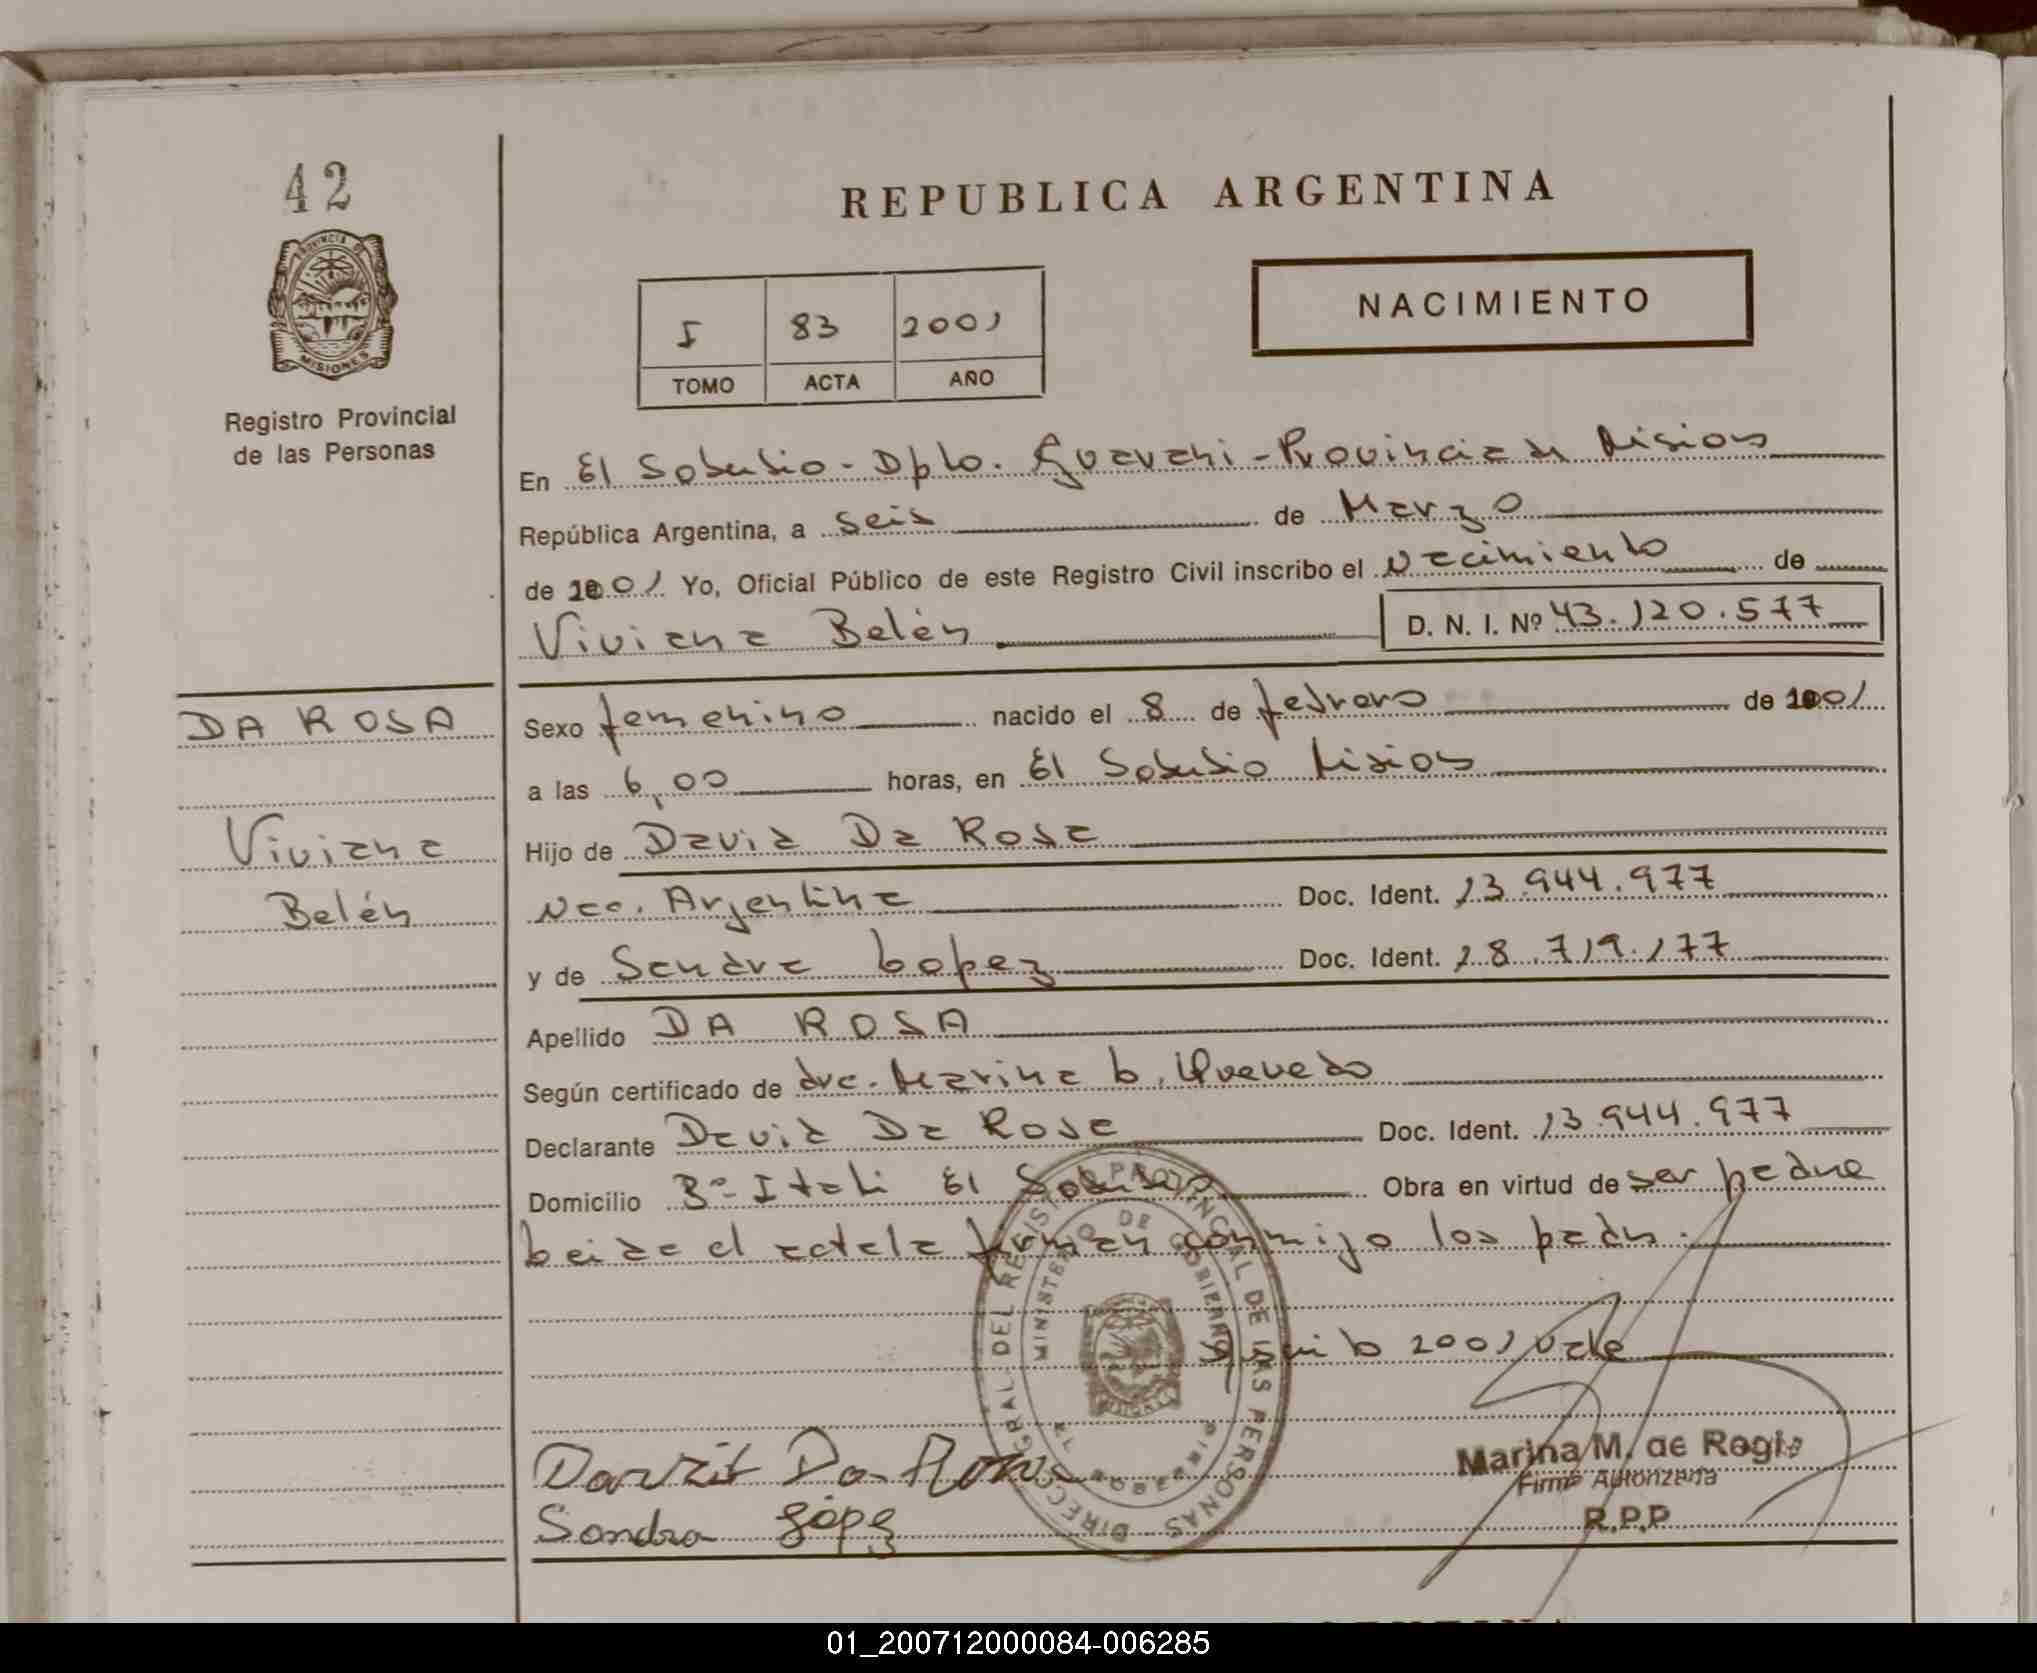 42
PROVINCIA DE
MISIONES
Registro Provincial
de las Personas
REPUBLICA ARGENTINA
I 83 2001
TOMO ACTA AÑO
NACIMIENTO
En El Soberbio - Dpto. Guarani - Provincia de Misiones
República Argentina, a seis de Marzo
de 2001 Yo, Oficial Público de este Registro Civil inscribo el Nacimiento de
Viviana Belén D. N. I. Nº 43.120.577
DA ROSA
Viviana
Belén
Sexo femenino nacido el 8 de febrero de 2001
a las 6,00 horas, en El Soberbio Misiones
Hijo de David Da Rosa
Nac. Argentina Doc. Ident. 13.944.977
y de Sandra Lopez Doc. Ident. 28.719.177
Apellido DA ROSA
Según certificado de dra. Marina b. Quevedo
Declarante David Da Rosa Doc. Ident. 13.944.977
Domicilio Bº Itati El Soberbio Obra en virtud de ser padre
leida el acta la firman conmigo los padres.
2001 vale
DIRECC GRAL. DEL REGISTRO PROVINCIAL DE LAS PERSONAS
MINISTERIO DE GOBIERNO
EL SOBERBIO
Da Rosa
Sandra López
Marina M. de Regis
Firma Autorizada
R.P.P
01_200712000084-006285